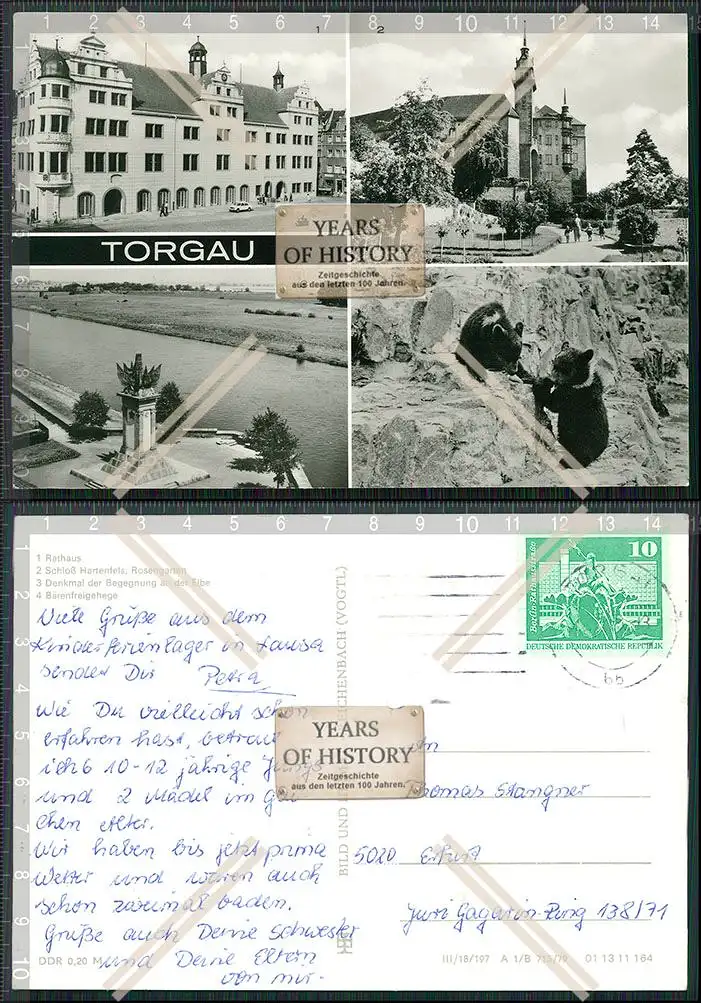 1 2
TORGAU
YEARS
OF HISTORY
Zeitgeschichte
aus den letzten 100 Jahren.
1 Rathaus
2 Schloß Hartenfels; Rosengarten
3 Denkmal der Begegnung an der Elbe
4 Bärenfreigehege
Viele Grüße aus dem
Kinderferienlager in Lausa
sendet Dir Petra
Wie Du vielleicht schon
erfahren hast, betreue
ich 6 10-12 jährige Jungs
und 2 Mädel im glei
chen Alter.
Wir haben bis jetzt prima
Wetter und waren auch
schon zweimal baden.
Grüße auch Deine Schwester
und Deine Eltern
von mir.
DDR 0,20 M
BILD UND HEIMAT REICHENBACH (VOGTL)
YEARS
OF HISTORY
Zeitgeschichte
aus den letzten 100 Jahren.
Berlin-Rathausstraße
10
DEUTSCHE DEMOKRATISCHE REPUBLIK
An
Thomas Stangner
5020 Erfurt
Juri Gagarin-Ring 138/71
III/18/197 A 1/B 715/79 01 13 11 164